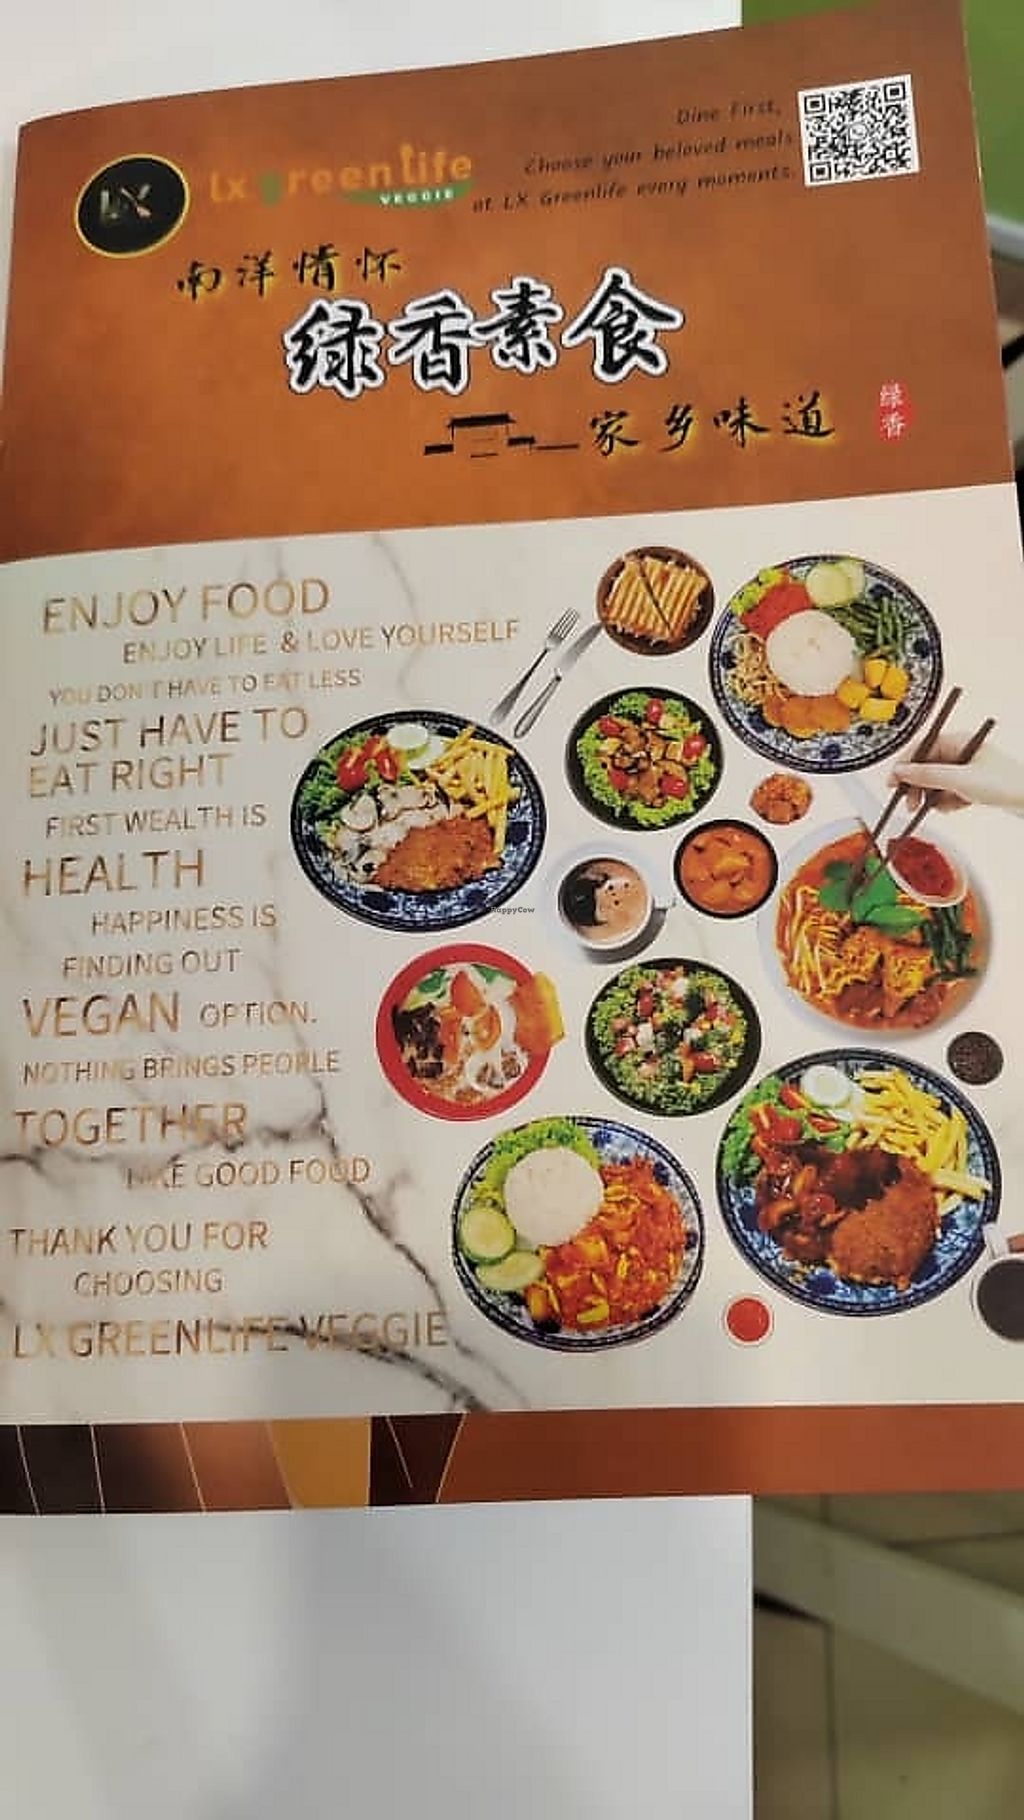 Dine First,
Choose your beloved meals
at LX Greenlife every moments.
LX
Lx greenlife
VEGGIE
南洋情怀
绿香素食
家乡味道
绿香
ENJOY FOOD
ENJOY LIFE & LOVE YOURSELF
YOU DON'T HAVE TO EAT LESS
JUST HAVE TO
EAT RIGHT
FIRST WEALTH IS
HEALTH
HAPPINESS IS
FINDING OUT
VEGAN OPTION.
NOTHING BRINGS PEOPLE
TOGETHER
LIKE GOOD FOOD
THANK YOU FOR
CHOOSING
LX GREENLIFE VEGGIE
HappyCow